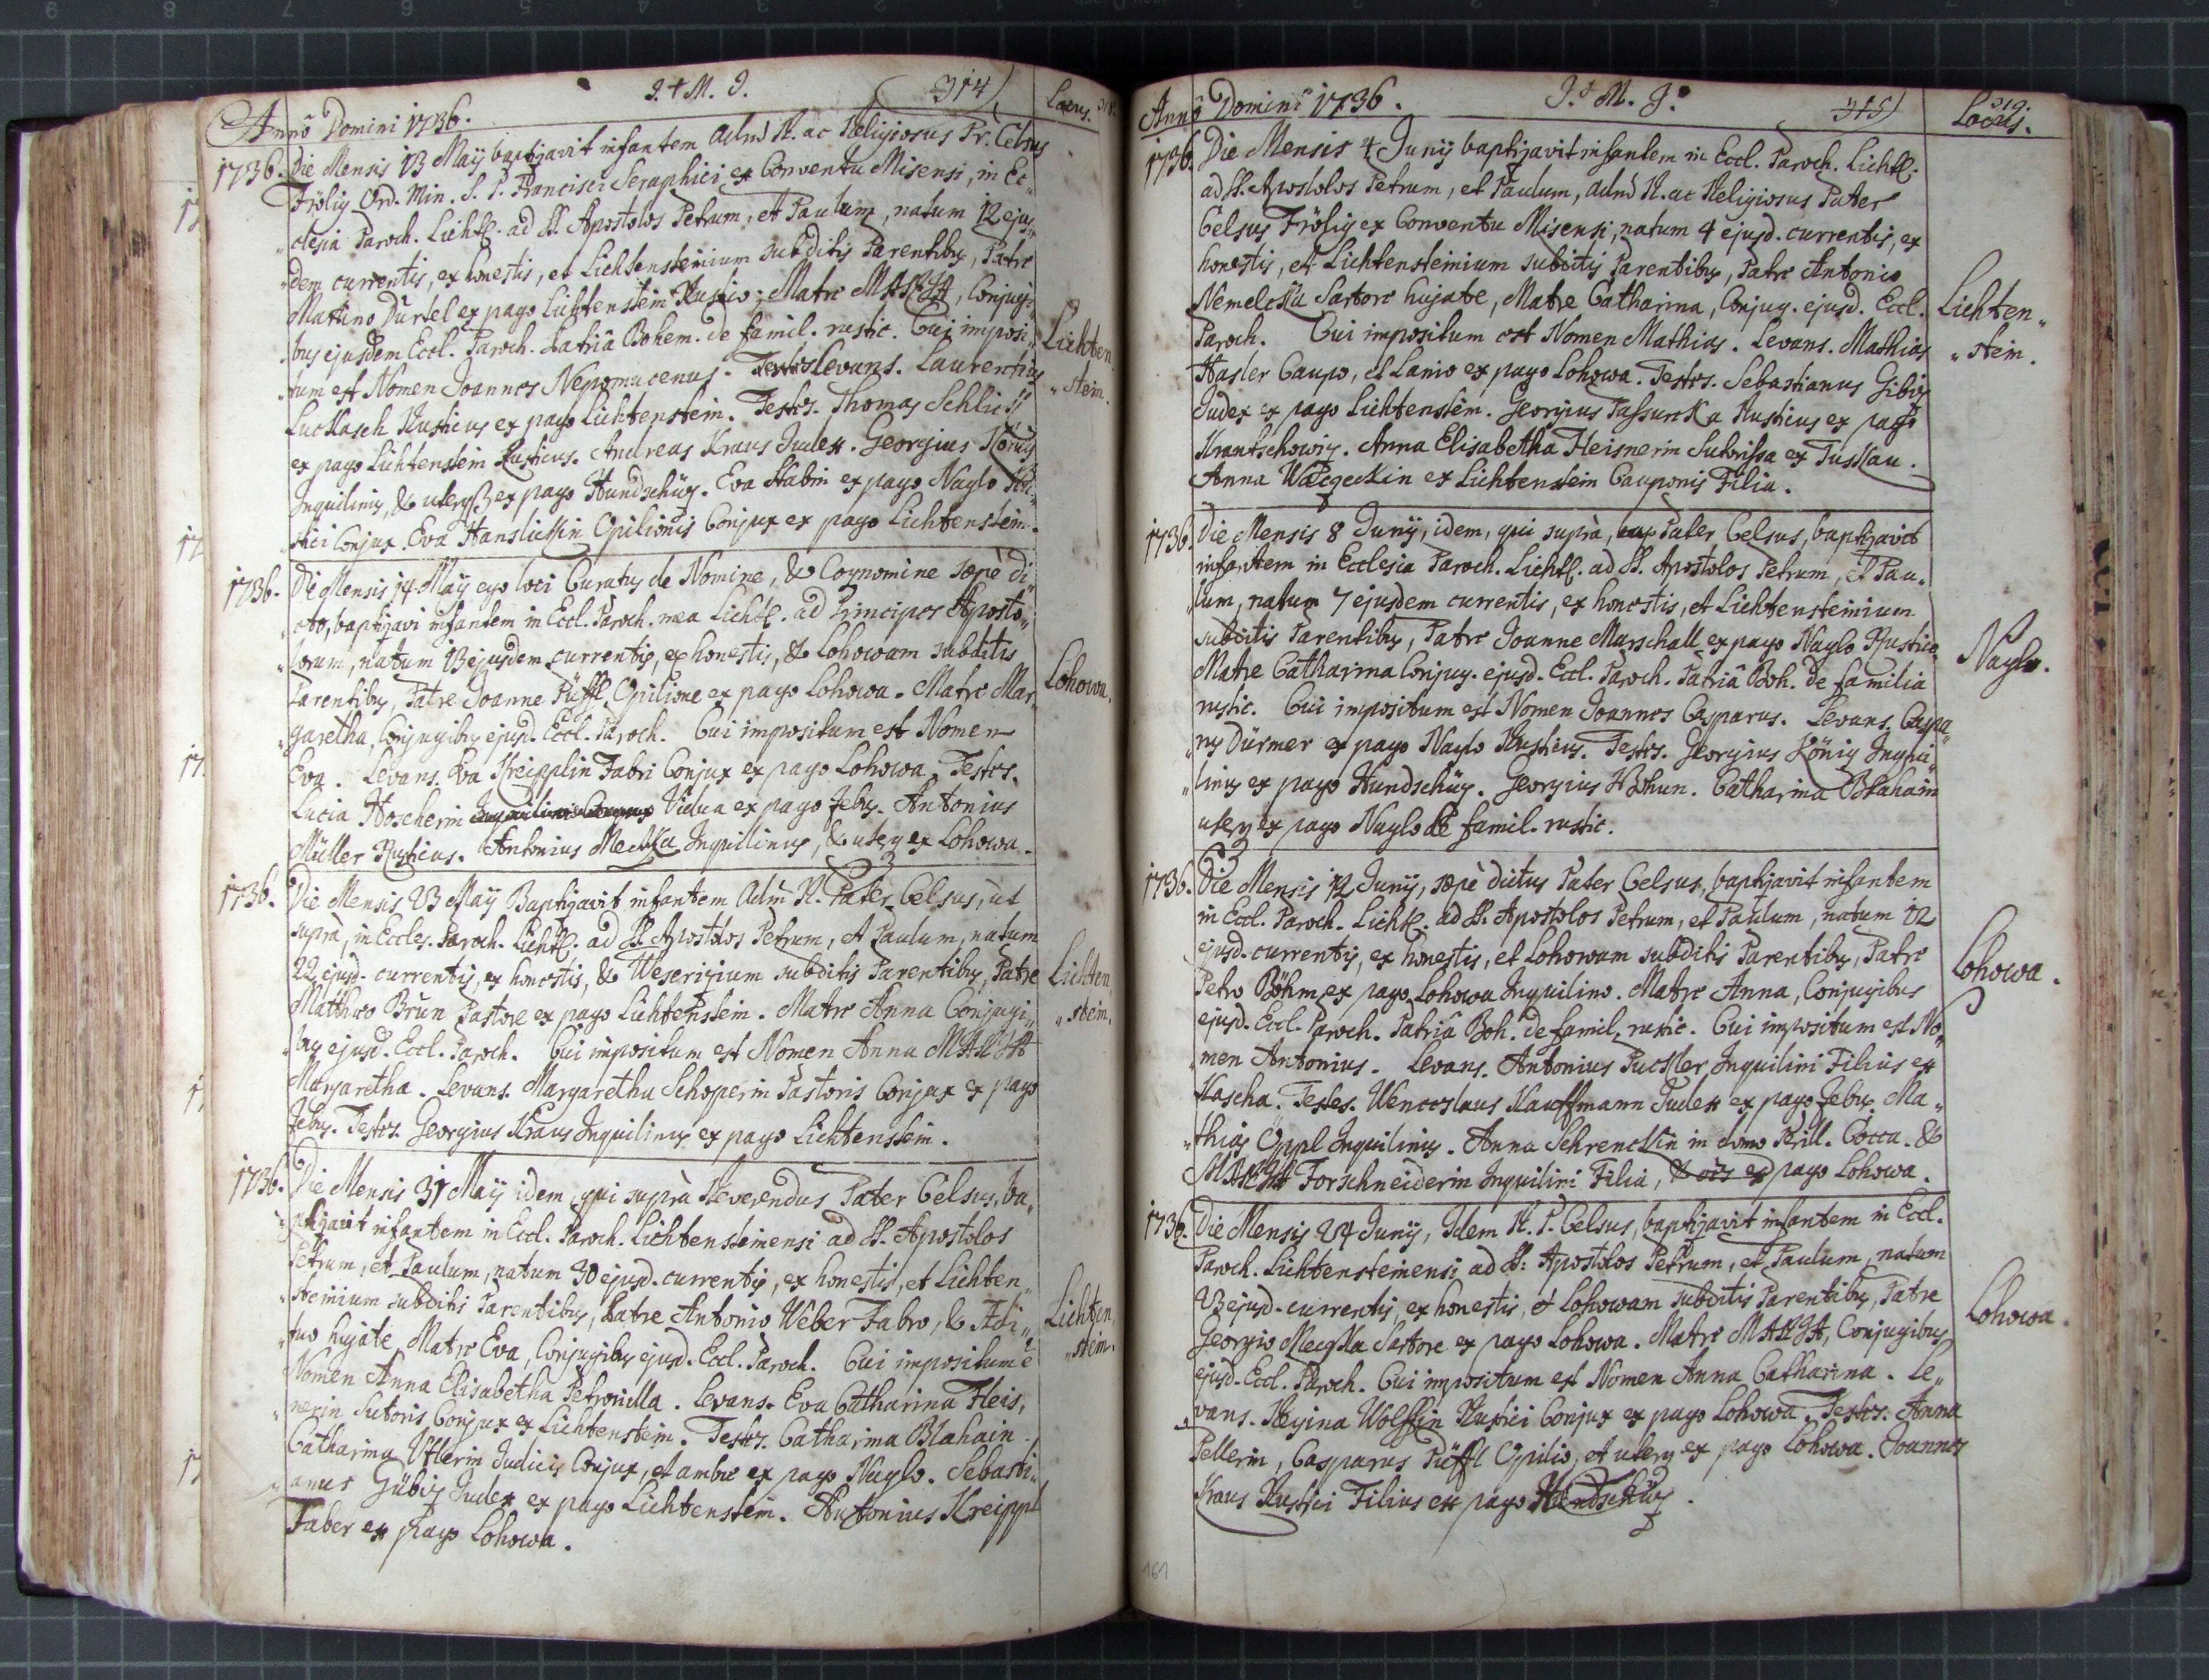 J. + M. J. 314) Locus. 318.
Annô Domini 1736.
1736. Die Mensis 13 Maÿ baptizavit infantem Adm̃ R. ac Religiosus Pr. Celsus
Frölig Ord. Min. S. P. Francisci Seraphici ex Conventu Misensi, in Ec„
„clesia Paroch. Licht. ad SS. Apostolos Petrum, et Paulum, natum 12 ejus„
„dem currentis, ex honestis, et Lichtensteinium subditis Parentibus, Patre
Martino Dürtel ex pago Lichtenstein Rustico; Matre MARIA, Conjugi„
„bus ejusdem Eccl. Paroch. Patriâ Bohem. de famil. rustic. Cui imposi„
„tum est Nomen Joannes Nepomucenus. Levans. Laurentius
Luckasch Rusticus ex pago Lichtenstein. Testes. Thomas Schlies
ex pago Lichtenstein Rusticus. Andreas Kraus Judex. Georgius
Inquilinus, & uterq ex pago Hundschüz. Eva Stabin ex pago Naglo Ru„
„stici Conjux. Eva Hanslickin Opilionis Conjux ex pago Lichtenstein.
Lichten„
„stein.
1736. Die Mensis 14 Maÿ ego loci Curatus de Nomine, & Cognomine sæpè di„
„cto, baptizavi infantem in Eccl. Paroch. mea Licht. ad Principes Aposto„
„lorum, natum 13 ejusdem currentis, ex honestis, & Lohowam subditis
Parentibus, Patre Joanne Püffl Opilione ex pago Lohowa. Matre Mar„
„garetha, Conjugibus ejusd. Eccl. Paroch. Cui impositum est Nomen
Eva. Levans. Eva Kreipplin Fabri Conjux ex pago Lohowa. Testes.
Lucia Hoscherin Vidua ex pago Jebus. Antonius
Müller Rusticus. Antonius Meczka Inquilinus, & uterq ex Lohowa.
Lohowa.
1736. Die Mensis 23 Maÿ Baptizavit infantem Adm̃ R. Pater Celsus, ut
suprà, in Eccles. Paroch. Licht. ad SS. Apostolos Petrum, et Paulum, natum
22 ejusd. currentis, ex honestis, & Weserizium subditis Parentibus, Patre
Matthæo Brŭn Pastore ex pago Lichtenstein. Matre Anna Conjugi„
„bus ejusd. Eccl. Paroch. Cui impositum est Nomen Anna MARIA
Margaretha. Levans. Margaretha Schoperin Pastoris Conjux ex pago
Jebus. Testes. Georgius Kraus Inquilinus ex pago Lichtenstein.
Lichten„
„stein.
1736. Die Mensis 31 Maÿ idem, qui suprà Reverendus Pater Celsus, ba„
„ptizavit infantem in Eccl. Paroch. Lichtensteinensi ad SS. Apostolos
Petrum, et Paulum, natum 30 ejusd. currentis, ex honestis, et Lichten„
„steinium subditis Parentibus, Patre Antonio Weber Fabro, & Ædi„
„tuo hujate, Matre Eva, Conjugibus ejusd. Eccl. Paroch. Cui impositum ẽ
Nomen Anna Elisabetha Petronilla. Levans. Eva Catharina Heis„
„nerin Sutoris Conjux ex Lichtenstein. Testes. Catharina Blahain
Catharina Utlerin Judicis Conjux, et ambæ ex pago Naglo. Sebasti„
„anus Gübis Judex ex pago Lichtenstein. Antonius Kreippl
Faber ex pago Lohowa.
Lichten„
„stein.
Annô Domini 1736. J. + M. J. 315) 319.
Locus.
1736. Die Mensis 4 Junÿ baptizavit infantem in Eccl. Paroch. Licht.
ad SS. Apostolos Petrum, et Paulum, Adm̃ R. ac Religiosus Pater
Celsus Frölig ex Conventu Misensi, natum 4 ejusd. currentis, ex
honestis, et Lichtensteinium subditis Parentibus, Patre Antonio
Nemelcka Sartore hujate, Matre Catharina, Conjug. ejusd. Eccl.
Paroch. Cui impositum est Nomen Mathias. Levans. Mathias
Hasler Caupo, et Lanio ex pago Lohowa. Testes. Sebastianus Gibis
Judex ex pago Lichtenstein. Georgius Passurcka Rusticus ex pago
Krantschowiz. Anna Elisabetha Heisnerin Sutorissa ex Tuskau.
Anna ex Lichtenstein Cauponis Filia.
Lichten„
„stein.
1736. Die Mensis 8 Junÿ, idem, qui suprà, Pater Celsus, baptizavit
infantem in Ecclesia Paroch. Licht. ad SS. Apostolos Petrum, et Pau„
„lum, natum 7 ejusdem currentis, ex honestis, et Lichtensteinium
subditis Parentibus, Patre Joanne Marschall ex pago Naglo Rustico,
Matre Catharina Conjug. ejusd. Eccl. Paroch. Patriâ Boh. de familia
rustic. Cui impositum est Nomen Joannes Casparus. Levans. Caspa„
„rus Dürmer ex pago Naglo Rusticus. Testes. Georgius König Inqui„
„linus ex pago Hundschüz. Georgius Bohun. Catharina Blahain
uterq ex pago Naglo de famil. rustic.
Naglo.
1736. Die Mensis 12 Junÿ, sæpè dictus Pater Celsus, baptizavit infantem
in Eccl. Paroch. Licht. ad SS. Apostolos Petrum, et Paulum, natum 12
ejusd. currentis, ex honestis, et Lohowam subditis Parentibus, Patre
Petro Böhm ex pago Lohowa Inquilino. Matre Anna, Conjugibus
ejusd. Eccl. Paroch. Patriâ Boh. de famil. rustic. Cui impositum est No„
„men Antonius. Levans. Antonius Puckler Inquilini Filius ex
Kascha. Testes. Wenceslaus Kauffmann Judex ex pago Jebus. Ma„
„thias Öppl Inquilinus. Anna Schrenckin in domo Perill. Cocca. &
MARIA Forschneiderin Inquilini Filia, & oẽs ex pago Lohowa.
Lohowa.
1736. Die Mensis 24 Junÿ, Idem R. P. Celsus, baptizavit infantem in Eccl.
Paroch. Lichtensteinensi ad SS. Apostolos Petrum, et Paulum, natum
23 ejusd. currentis, ex honestis, et Lohowam subditis Parentibus, Patre
Georgio Meczka Sartore ex pago Lohowa. Matre MARIA, Conjugibus
ejusd. Eccl. Paroch. Cui impositum est Nomen Anna Catharina. Le„
„vans. Regina Wolffin Rustici Conjux ex pago Lohowa. Testes. Anna
Pellerin, Casparus Püffl Opilio, et uterq ex pago Lohowa. Joannes
Kraus Rustici Filius ex pago Hundschüz.
Lohowa.
161